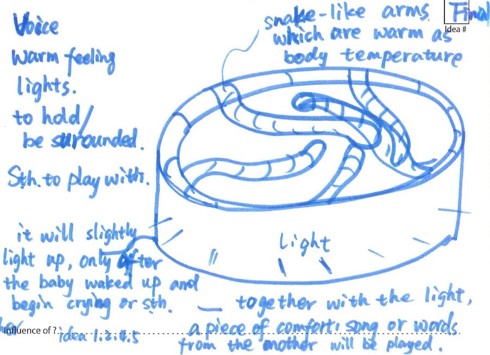 Voice
warm feeling
lights.
to hold/
be surounded.
Sth. to play with.
snake-like arms
which are warm as
body temperature
Final
Idea #
Light
it will slightly
light up, only after
the baby waked up and
begin crying or sth.
— together with the light,
a piece of comfort song or words
from the mother will be played.
influence of ? idea 1.2.4.5